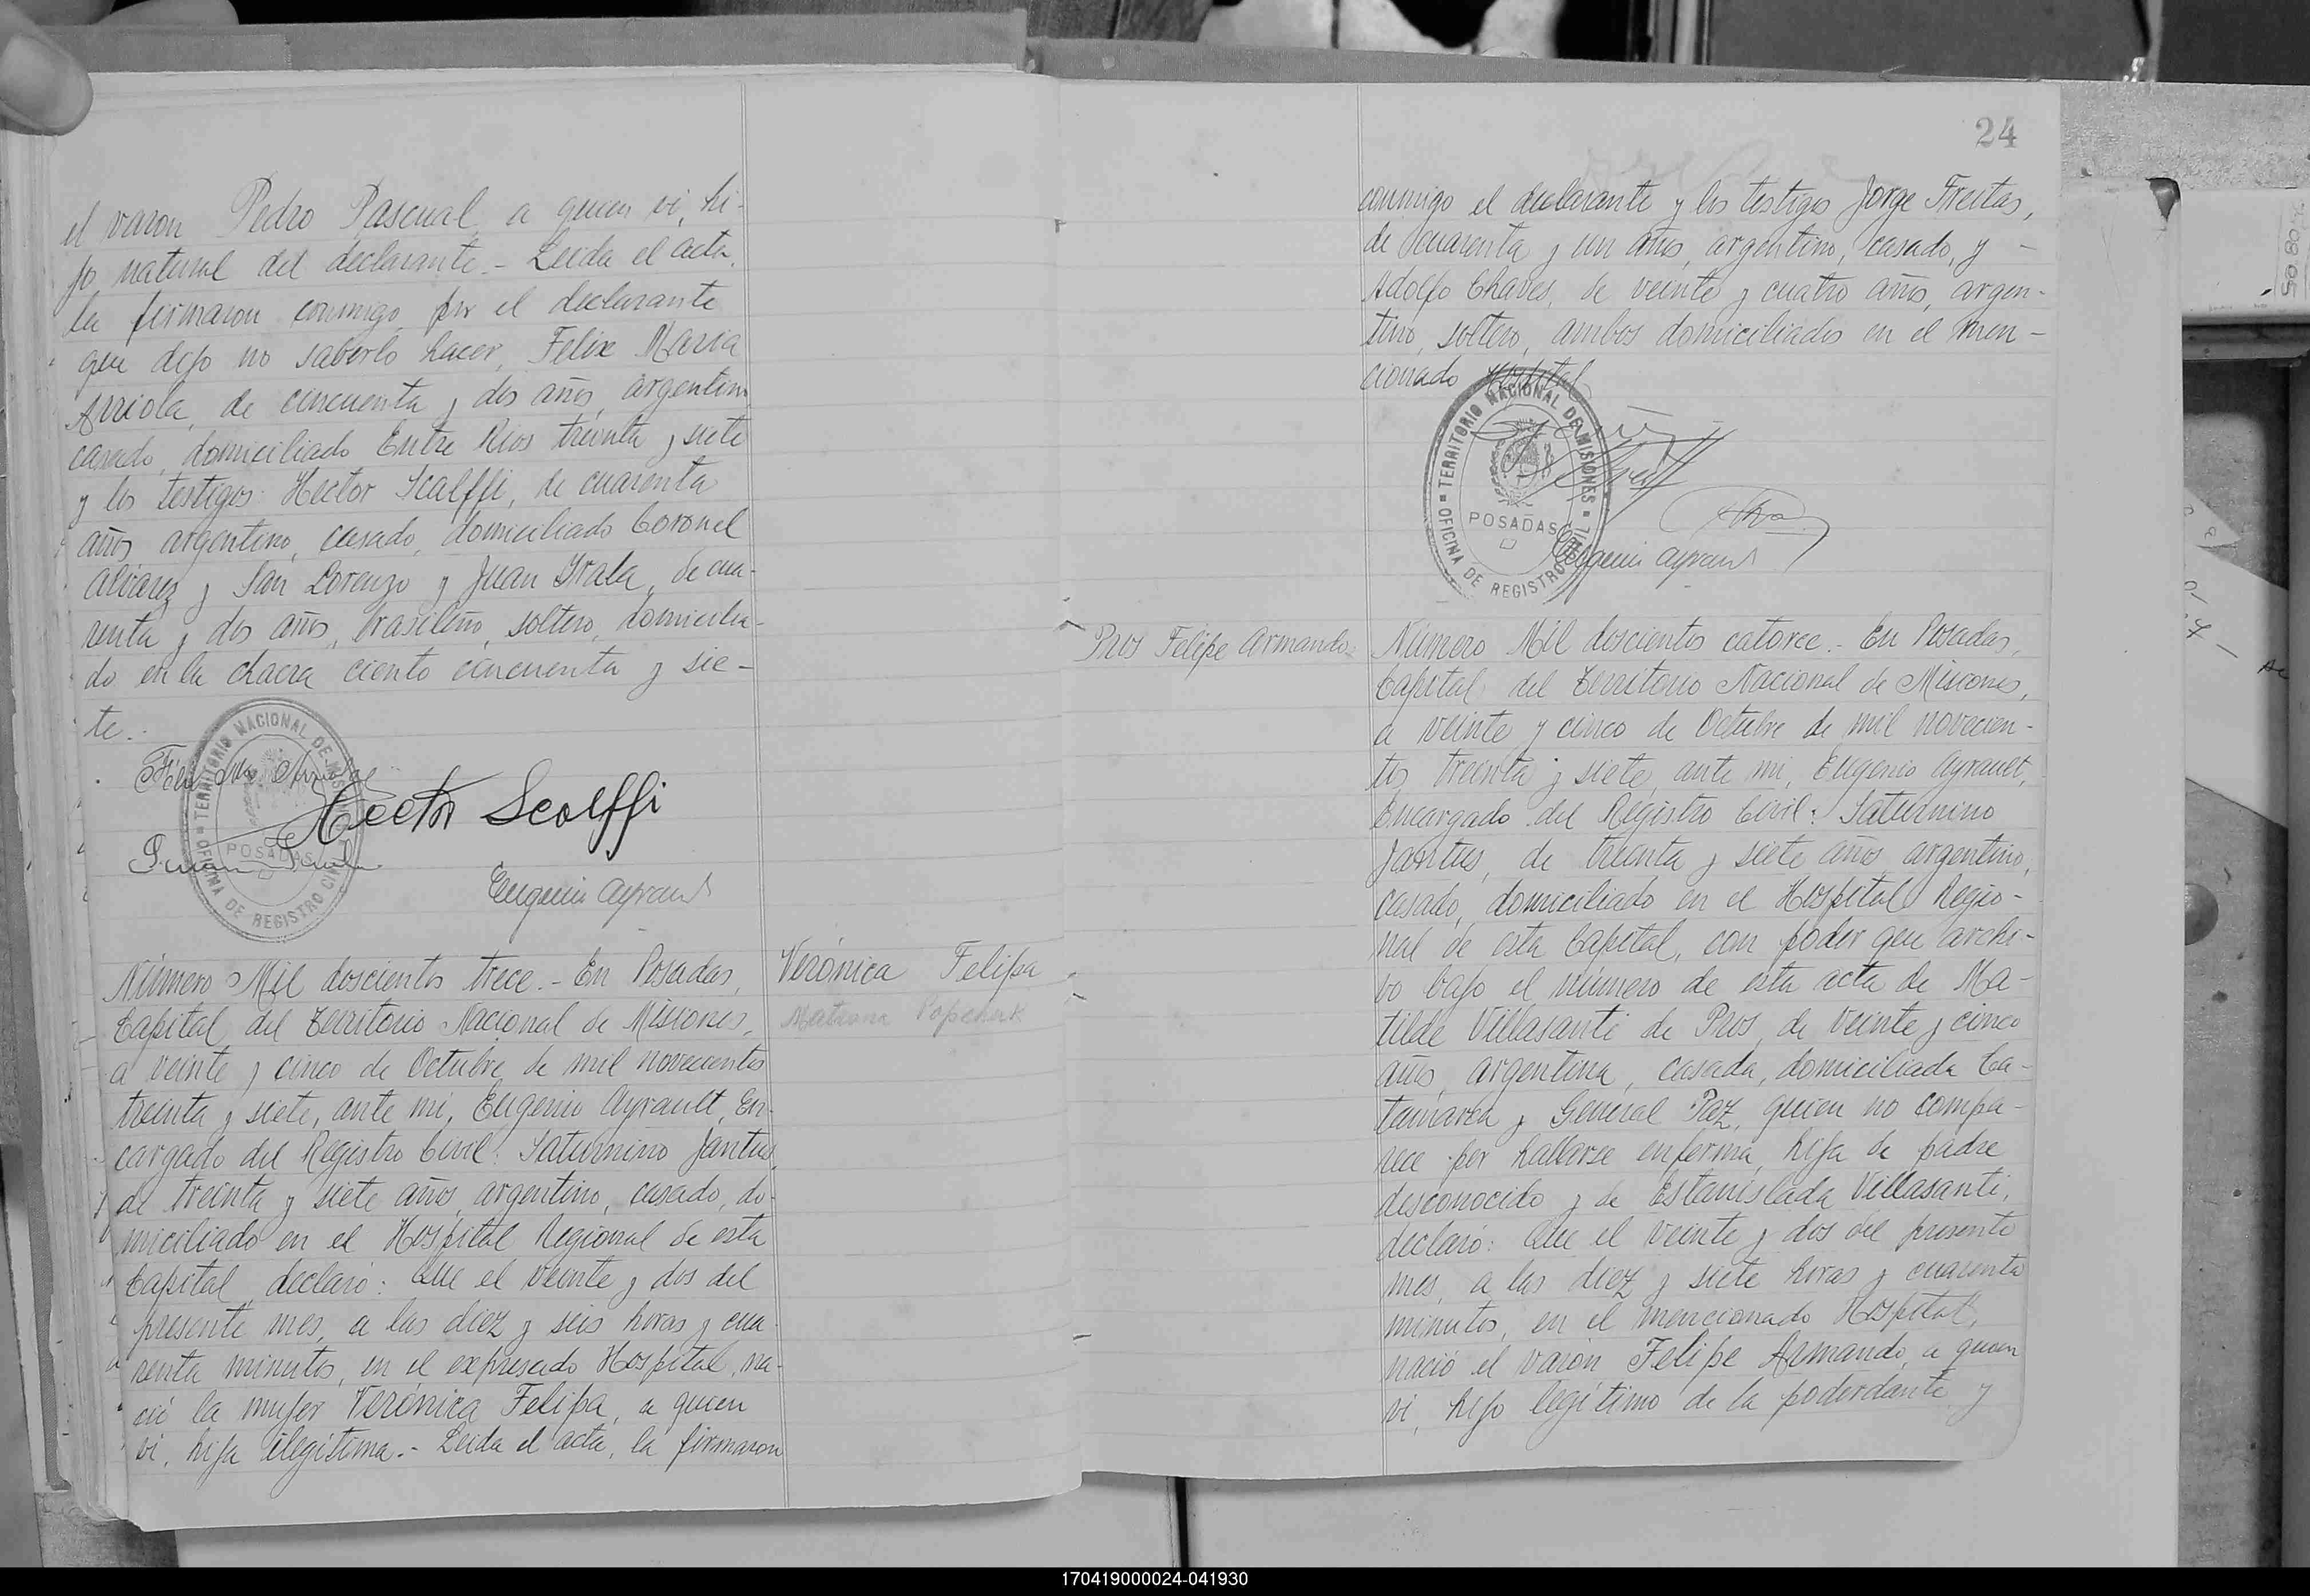 el varon Pedro Pascual, a quien vi, hi-
jo natural del declarante.- Leida el acta,
la firmaron conmigo, por el declarante
que dijo no saberlo hacer, Felix Maria
Arriola, de cincuenta y dos años, argentino
casado, domiciliado Entre Rios treinta y siete
y los testigos: Hector Scalffi, de cuarenta
años argentino, casado, domiciliado Coronel
Alvarez y San Lorenzo y Juan Irala, de cua-
renta y dos años, brasileño, soltero, domicilia-
do en la chacra ciento cincuenta y sie-
te.-
TERRITORIO NACIONAL DE MISIONES
POSADAS
OFICINA DE REGISTRO CIVIL
Felix Ma Arriola
Hector Scolffi
Juan Irala
Eugenio Ayrault
Número Mil doscientos trece.- En Posadas,
Capital del Territorio Nacional de Misiones,
a veinte y cinco de Octubre de mil novecientos
treinta y siete, ante mi, Eugenio Ayrault, En-
cargado del Registro Civil: Saturnino Jantus,
de treinta y siete años, argentino, casado, do-
miciliado en el Hospital Regional de esta
Capital, declaró: Que el veinte y dos del
presente mes, a las diez y seis horas y cua-
renta minutos, en el expresado Hospital, na-
ció la mujer Verónica Felipa, a quien
vi, hija ilegítima.- Leida el acta, la firmaron
Verónica Felipa
Matrona Popchuk
24
conmigo el declarante y los testigos Jorge Freitas,
de cuarenta y un años, argentino, casado, y -
Adolfo Chaves, de veinte y cuatro años, argen-
tino, soltero, ambos domiciliados en el men-
cionado Hospital
TERRITORIO NACIONAL DE MISIONES
POSADAS
OFICINA DE REGISTRO CIVIL
Eugenio Ayrault
Pros Felipe Armando
Número Mil doscientos catorce.- En Posadas,
Capital del Territorio Nacional de Misiones,
a veinte y cinco de Octubre de mil novecien-
tos treinta y siete, ante mi, Eugenio Ayrault,
Encargado del Registro Civil: Saturnino
Jantus, de treinta y siete años, argentino,
casado, domiciliado en el Hospital Regio-
nal de esta Capital, con poder que archi-
vo bajo el número de esta acta de Ma-
tilde Villasanti de Pros, de veinte y cinco
años, argentina, casada, domiciliada Ca-
tamarca y General Paz, quien no compa-
rece por hallarse enferma, hija de padre
desconocido y de Estanislada Villasanti,
declaró: Que el veinte y dos del presente
mes, a las diez y siete horas y cuarenta
minutos, en el mencionado Hospital,
nació el varón Felipe Armando, a quien
vi, hijo legítimo de la poderdante y
170419000024-041930